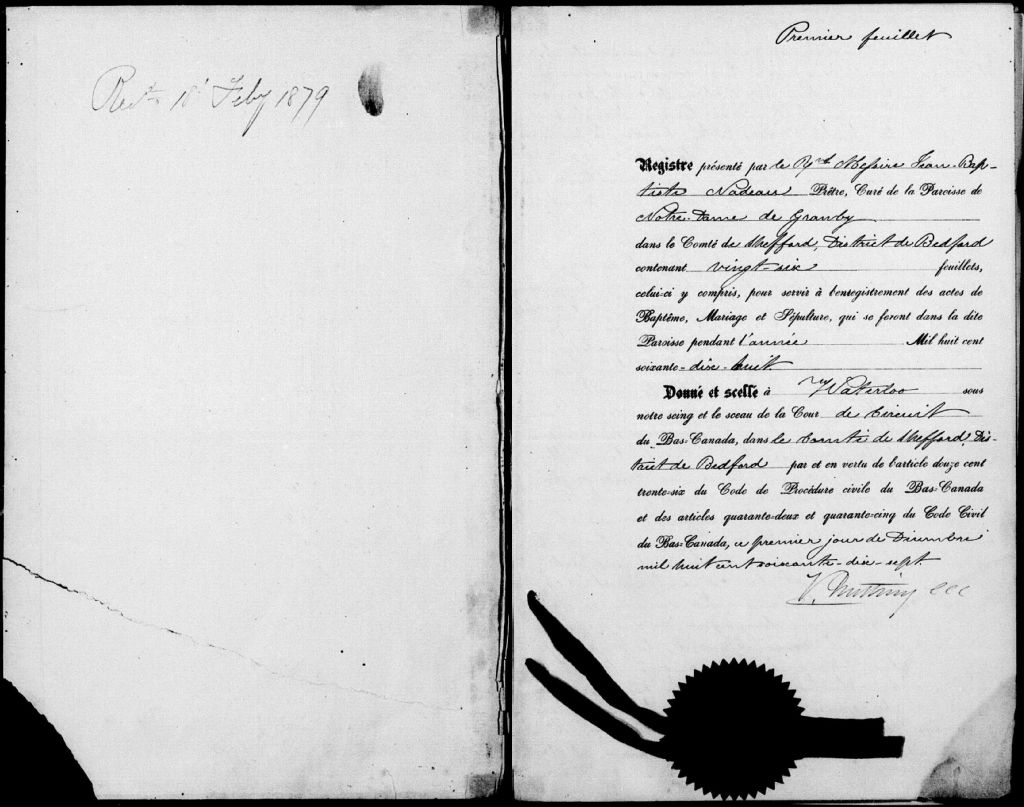 Recd 18 Feby 1879
Premier feuillet
Registre présenté par le Rvd Messire Jean-Bap-
tiste Nadeau Prêtre, Curé de la Paroisse de
Notre-Dame de Granby
dans le Comté de Shefford, District de Bedford
contenant vingt-six feuillets,
celui-ci y compris, pour servir à l'enregistrement des actes de
Baptême, Mariage et Sépulture, qui se feront dans la dite
Paroisse pendant l'année Mil huit cent
soixante-dix-huit.
Donné et scellé à Waterloo sous
notre seing et le sceau de la Cour de Circuit
du Bas-Canada, dans le Comté de Shefford, Dis-
trict de Bedford par et en vertu de l'article douze cent
trente-six du Code de Procédure civile du Bas-Canada
et des articles quarante-deux et quarante-cinq du Code Civil
du Bas-Canada, ce premier jour de Décembre
mil huit cent soixante-dix-sept.